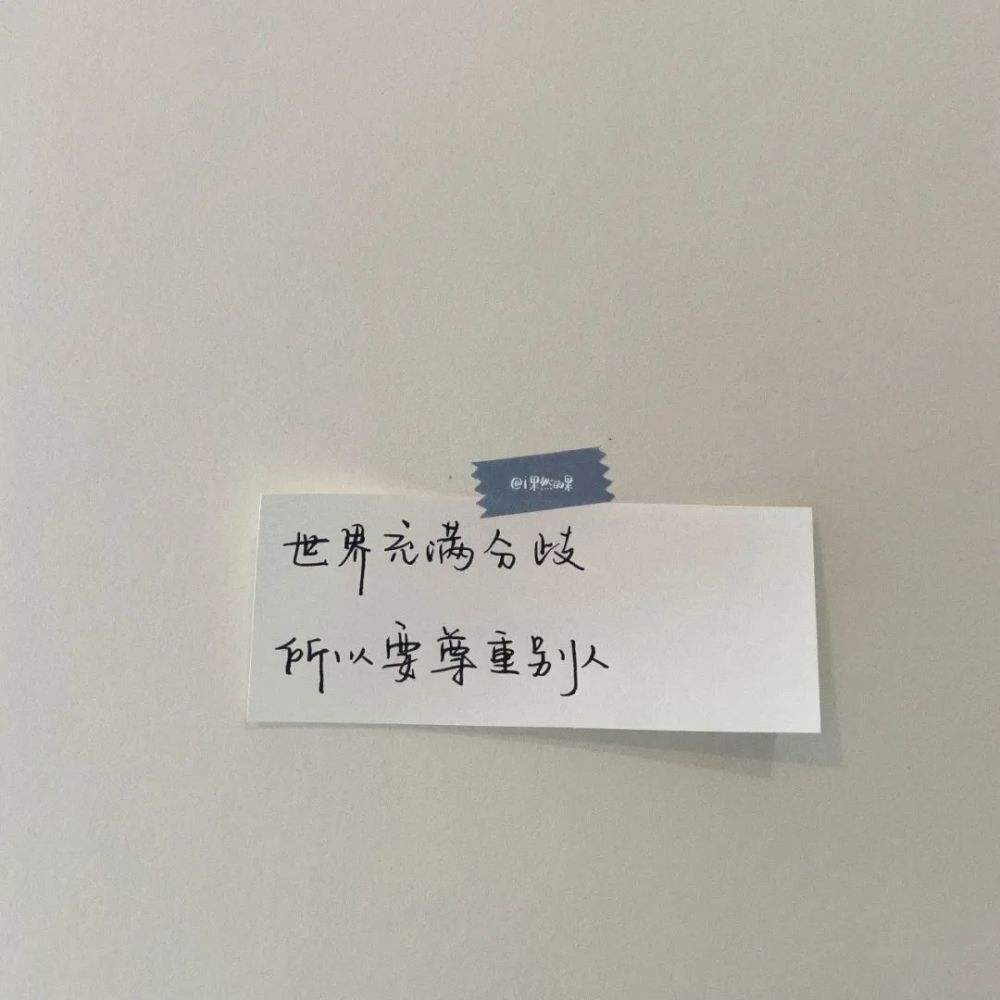 @i果然的果
世界充满分歧
所以要尊重别人